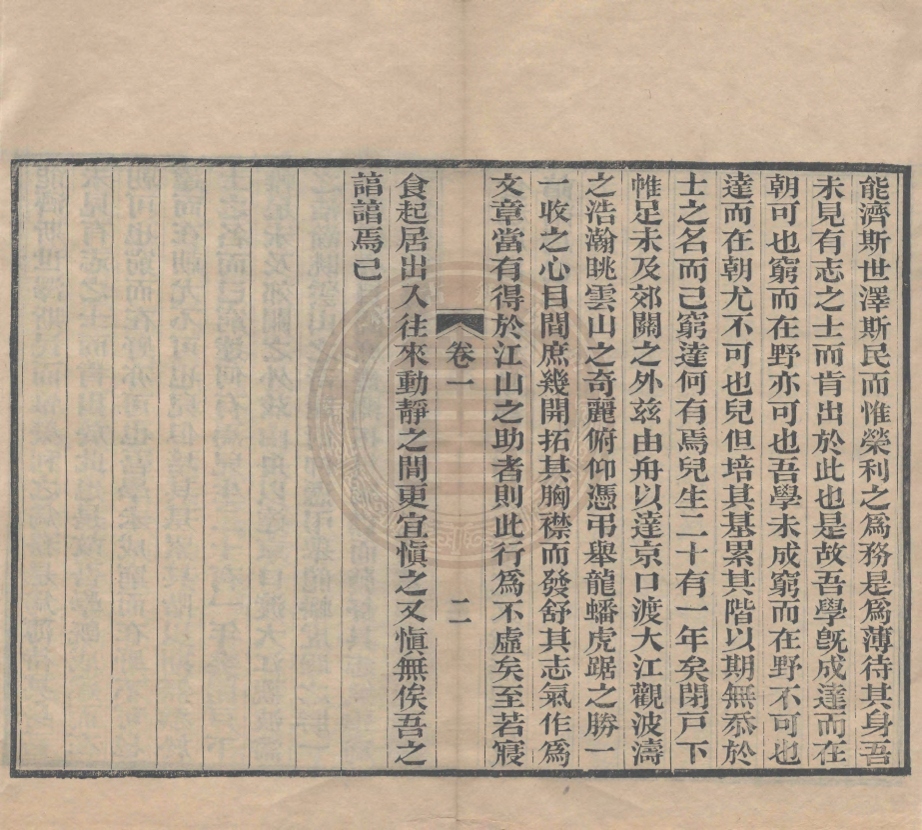 能濟斯世澤斯民而惟榮利之爲務是爲薄待其身吾
未見有志之士而肯出於此也是故吾學旣成達而在
朝可也窮而在野亦可也吾學未成窮而在野不可也
達而在朝尤不可也兒但培其基累其階以期無忝於
士之名而已窮達何有焉兒生二十有一年矣閉戸下
帷足未及郊關之外兹由舟以達京口渡大江觀波濤
之浩瀚眺雲山之奇麗俯仰憑弔舉龍蟠虎踞之勝一
一收之心目間庶幾開拓其胸襟而發舒其志氣作爲
文章當有得於江山之助者則此行爲不虛矣至若寢
卷一
二
食起居出入往來動靜之間更宜愼之又愼無俟吾之
諳諳焉已